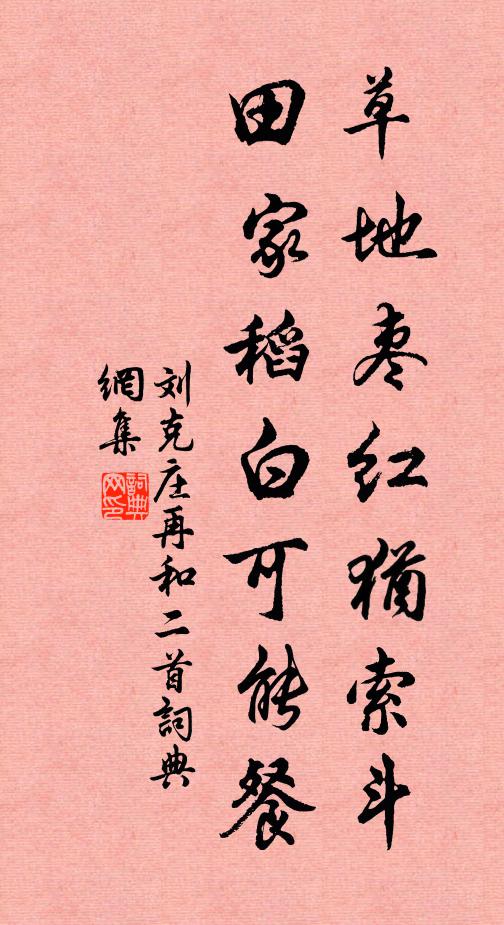 草地枣红犹索斗
田家稻白可能餐
刘克庄再和二首詞典
網集
詞典
网印